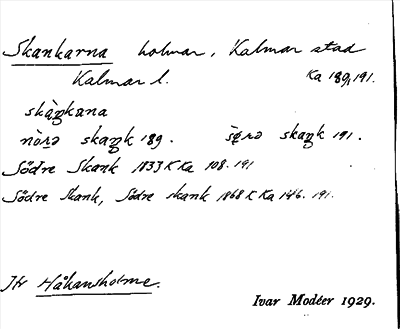 Skankarna holmar, Kalmar stad
Kalmar l. Ka 189, 191.
skàŋkana
nò̱rə skaŋk 189. sø̱rə skaŋk 191.
Södre Skank 1833 K Ka 108. 191
Södre Skank, Södre skank 1868 K Ka 146. 191.
Jfr Håkansholme.
Ivar Modéer 1929.